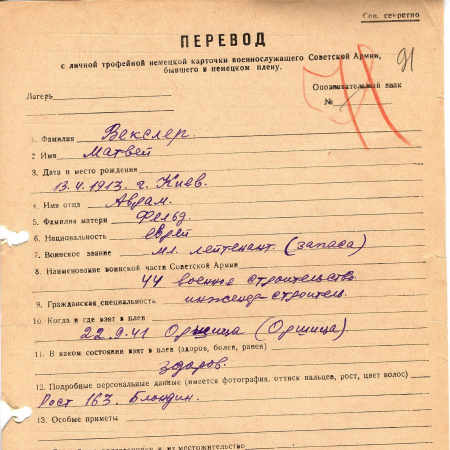 Сов. секретно
ПЕРЕВОД
с личной трофейной немецкой карточки военнослужащего Советской Армии,
бывшего в немецком плену.
91
Лагерь
Опознавательный знак
№
1. Фамилия Векслер.
2 Имя Матвей
3. Дата и место рождения
13.4.1913. г. Киев.
4. Имя отца Аврам.
5. Фамилия матери Фельд.
6. Национальность еврей
7. Воинское звание мл. лейтенант. (запаса)
8. Наименование воинской части Советской Армии
44 военное строительство.
9. Гражданская специальность инженер-строитель.
10. Когда и где взят в плен
22.9.41 Оржица (Оршица)
11. В каком состоянии взят в плен (здоров, болен, ранен)
здоров.
12. Подробные персональные данные (имеется фотография, оттиск пальцев, рост, цвет волос)
Рост 163. Блондин.
13. Особые приметы
и их местожительство